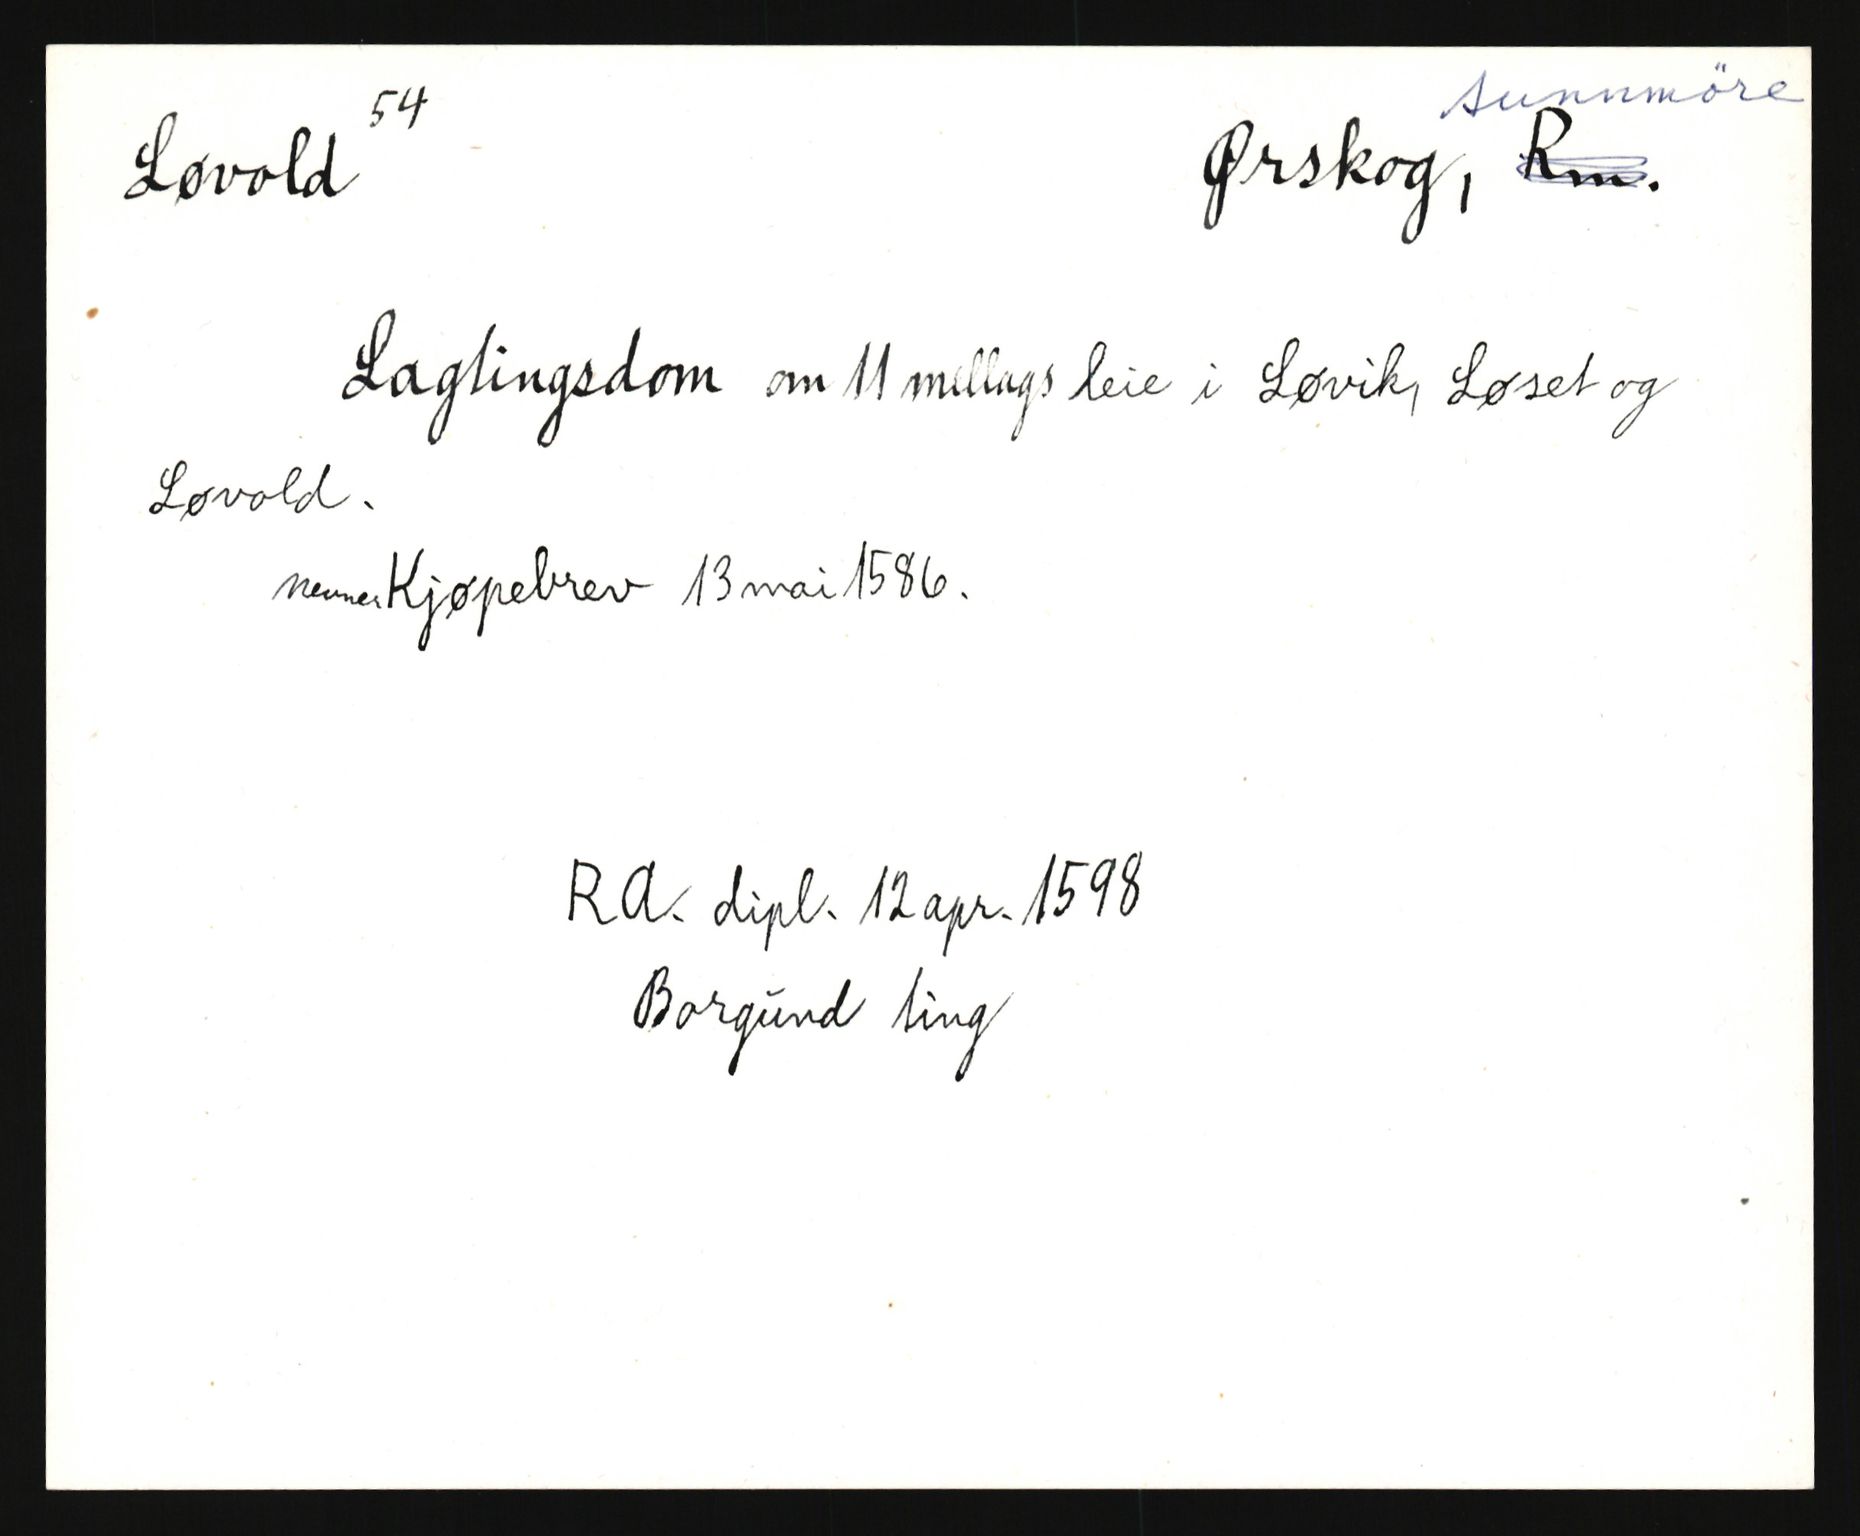 Løvold 54 Ørskog, R̶m̶. Sunnmöre
Lagtingsdom om 11 mellags leie i Løvik, Løset og
Løvold.
nevner Kjøpebrev 13 mai 1586.
RA. dipl. 12 apr. 1598
Borgund ting